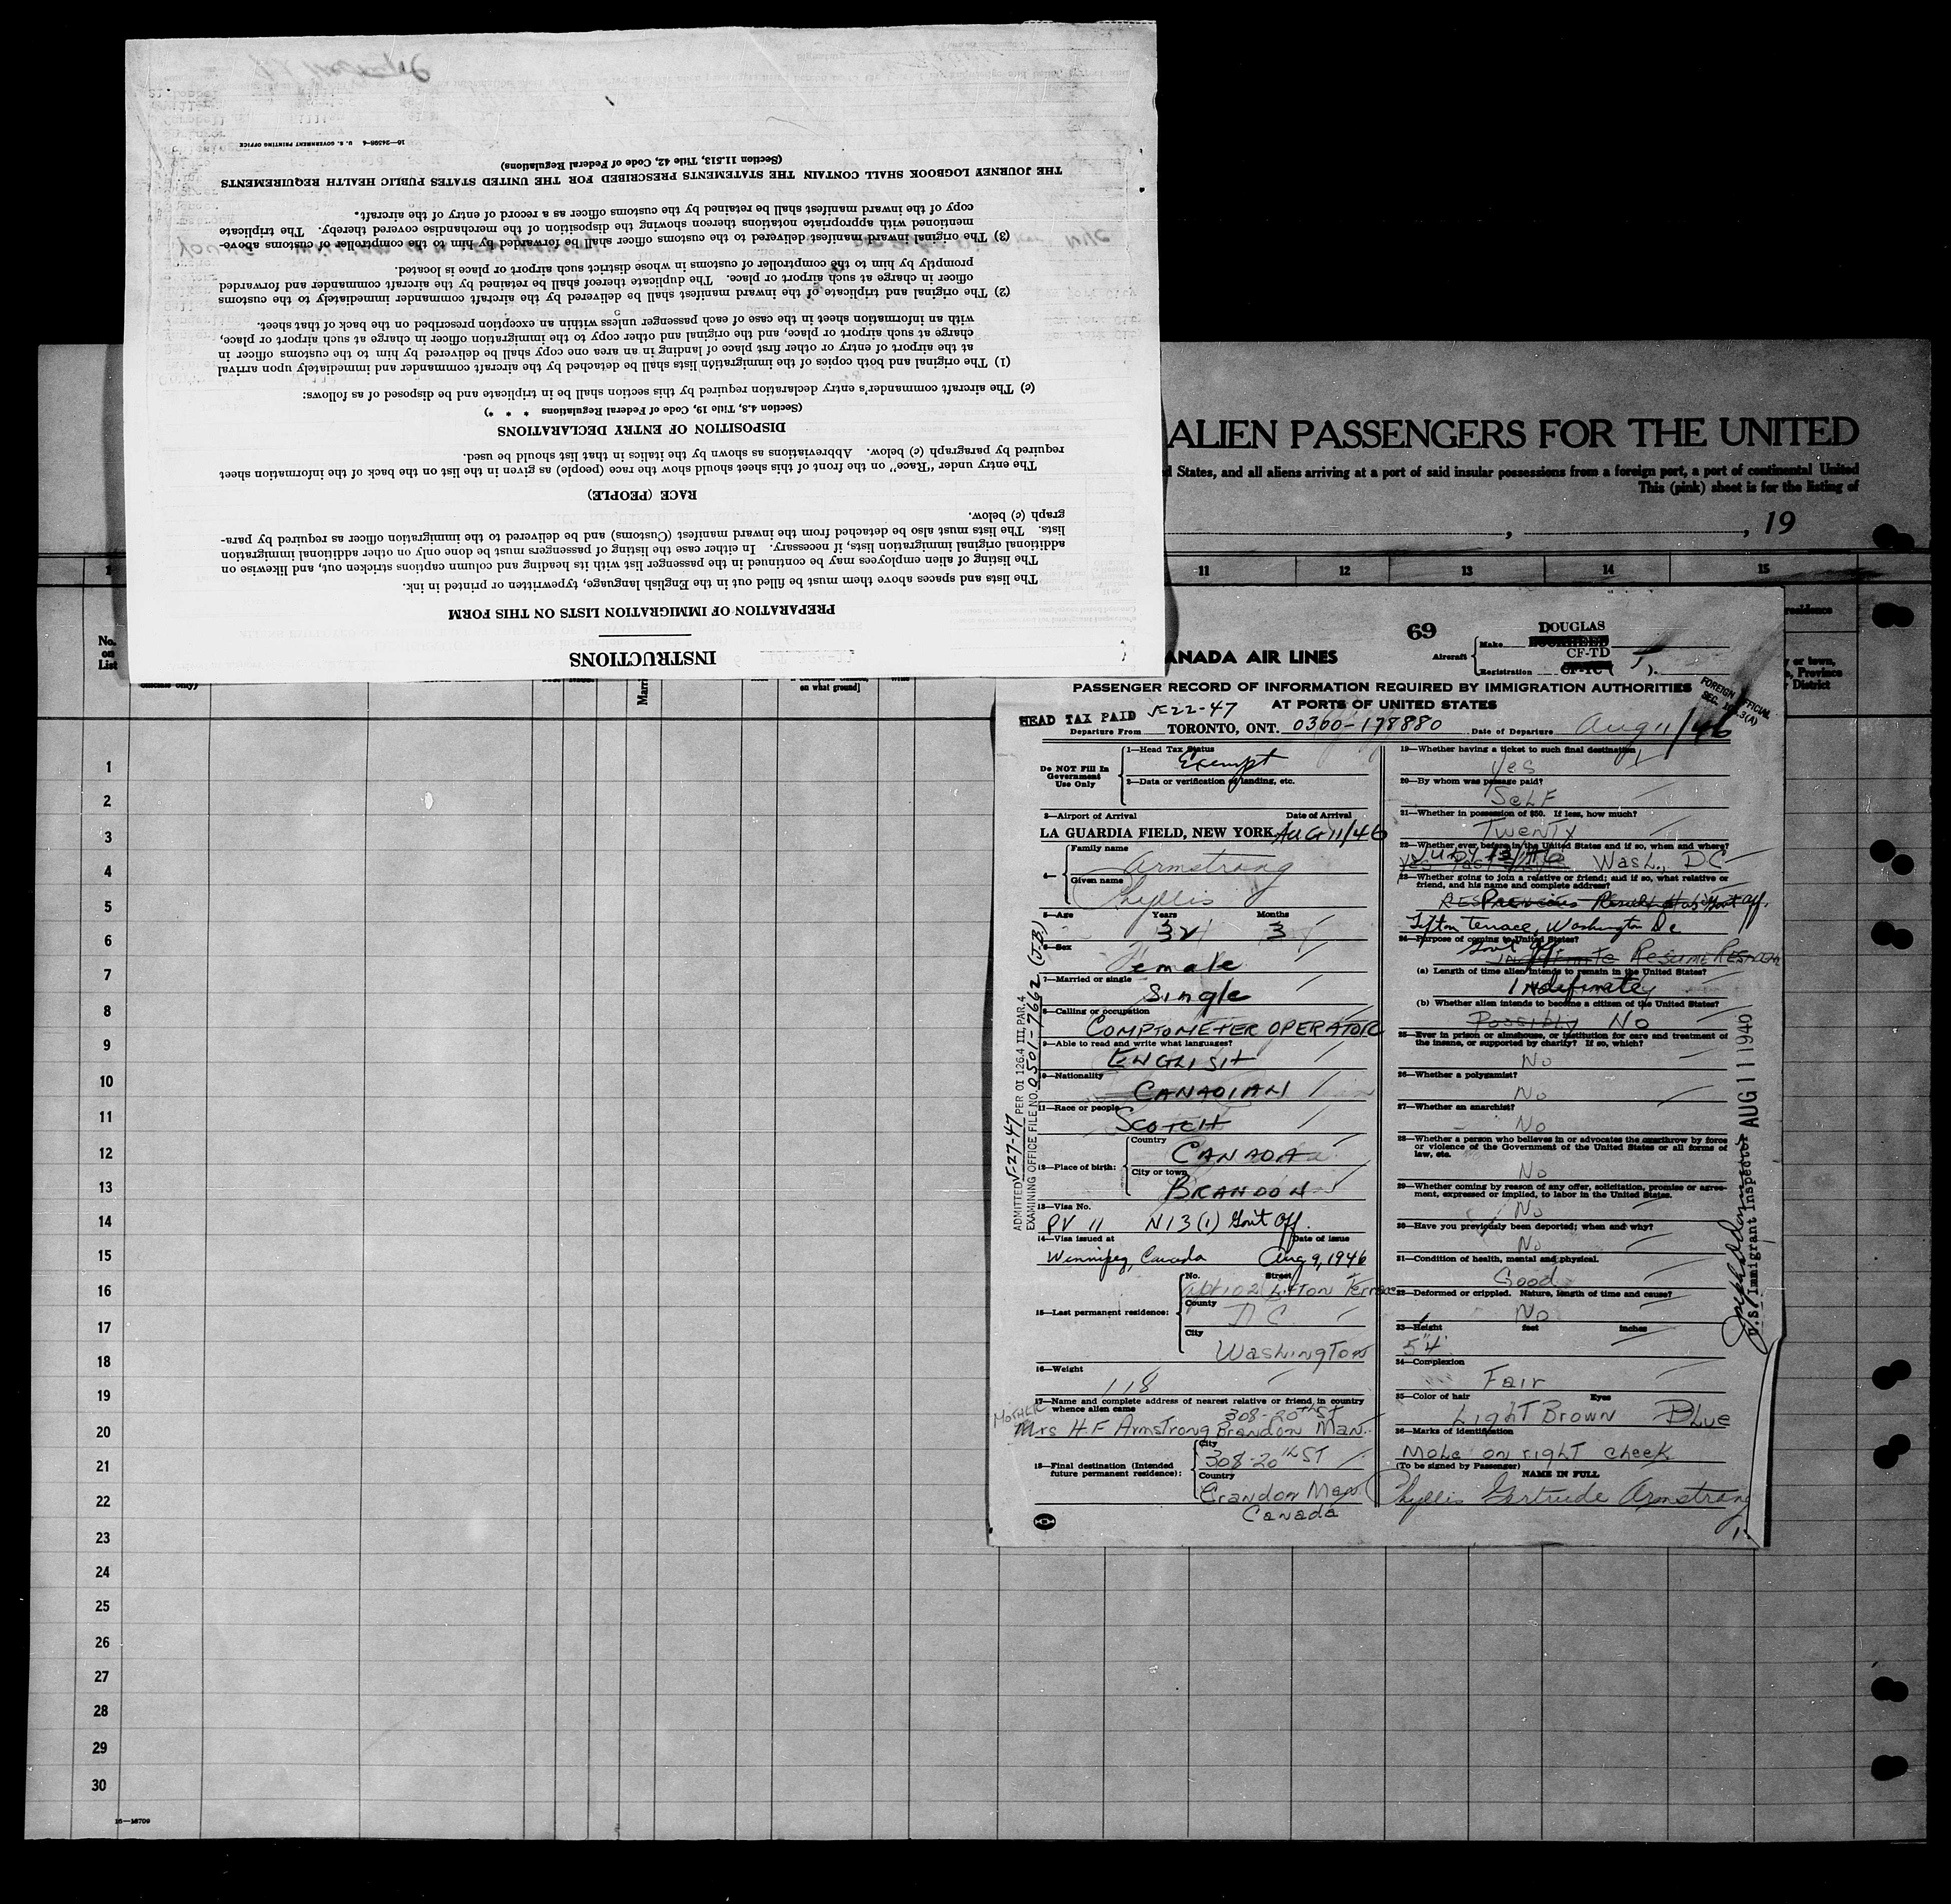 INSTRUCTIONS
PREPARATION OF IMMIGRATION LISTS ON THIS FORM
The lists and spaces above them must be filled out in the English language, typewritten or printed in ink.
The listing of alien employees may be continued in the passenger list with its heading and column captions stricken out, and likewise on
additional original immigration lists, if necessary. In either case the listing of passengers must be done only on other additional immigration
lists. The lists must also be detached from the inward manifest (Customs) and be delivered to the immigration officer as required by para-
graph (c) below.
RACE (PEOPLE)
The entry under "Race" on the front of this sheet should show the race (people) as given in the list on the back of the information sheet
required by paragraph (c) below. Abbreviations as shown by the italics in that list should be used.
DISPOSITION OF ENTRY DECLARATIONS
(Section 4.8, Title 19, Code of Federal Regulations * * *)
(c) The aircraft commander's entry declaration required by this section shall be in triplicate and be disposed of as follows:
(1) The original and both copies of the immigration lists shall be detached by the aircraft commander and immediately upon arrival
at the airport of entry or other first place of landing in an area one copy shall be delivered by him to the customs officer in
charge at such airport or place, and the original and other copy to the immigration officer in charge at such airport or place,
with an information sheet in the case of each passenger unless within an exception prescribed on the back of that sheet.
(2) The original and triplicate of the inward manifest shall be delivered by the aircraft commander immediately to the customs
officer in charge at such airport or place. The duplicate thereof shall be retained by the aircraft commander and forwarded
promptly by him to the comptroller of customs in whose district such airport or place is located.
(3) The original inward manifest delivered to the customs officer shall be forwarded by him to the comptroller of customs above-
mentioned with appropriate notations thereon showing the disposition of the merchandise covered thereby. The triplicate
copy of the inward manifest shall be retained by the customs officer as a record of entry of the aircraft.
THE JOURNEY LOGBOOK SHALL CONTAIN THE STATEMENTS PRESCRIBED FOR THE UNITED STATES PUBLIC HEALTH REQUIREMENTS
(Section 11.513, Title 42, Code of Federal Regulations)
16—24598-4 U. S. GOVERNMENT PRINTING OFFICE
ALIEN PASSENGERS FOR THE UNITED
d States, and all aliens arriving at a port of said insular possessions from a foreign port, a port of continental United
This (pink) sheet is for the listing of
, , 19
11 12 13 14 15
No. on List
on what ground]
69
DOUGLAS
Aircraft Make
CF-TD
Registration CF-TC (
ANADA AIR LINES
PASSENGER RECORD OF INFORMATION REQUIRED BY IMMIGRATION AUTHORITIES
AT PORTS OF UNITED STATES
FOREIGN OFFICIAL
HEAD TAX PAID 5-22-47
Departure From TORONTO, ONT. 0300-178880 Date of Departure Aug 11/46
Do NOT Fill In Government Use Only
1—Head Tax Status
Exempt
2—Data or verification of landing, etc.
3—Airport of Arrival Date of Arrival
LA GUARDIA FIELD, NEW YORK AUG 11/46
4— Family name
Armstrong
Given name
Phyllis
5—Age Years Months
32 3
6—Sex
Female
7—Married or single
Single
8—Calling or occupation
COMPTOMETER OPERATOR
9—Able to read and write what languages?
ENGLISH
10—Nationality
CANADIAN
11—Race or people
SCOTCH
12—Place of birth: Country
CANADA
City or town
BRANDON
13—Visa No.
PV 11 N13(1) Gov't Off.
14—Visa issued at Date of issue
Winnipeg, Canada Aug 9, 1946
15—Last permanent residence: No. Street
Apt 102 Lifton Terrace
County
D C
City
Washington
16—Weight
118
17—Name and complete address of nearest relative or friend in country
whence alien came
MOTHER 308-20th ST
Mrs H.F Armstrong Brandon Man.
18—Final destination (Intended future permanent residence): City
308-20th ST
Country
Brandon Man.
Canada
19—Whether having a ticket to such final destination
Yes
20—By whom was passage paid?
Self
21—Whether in possession of $50. If less, how much?
Twenty
22—Whether ever before in the United States and if so, when and where?
July 13/46 Wash., DC
23—Whether going to join a relative or friend; and if so, what relative or
friend, and his name and complete address?
Tifton Terrace, Washington D.C
24—Purpose of coming to United States?
Gov't Off
(a) Length of time alien intends to remain in the United States?
Indefinitely
(b) Whether alien intends to become a citizen of the United States?
Possibly No
25—Ever in prison or almshouse, or institution for care and treatment of
the insane, or supported by charity? If so, which?
No
26—Whether a polygamist?
No
27—Whether an anarchist?
No
28—Whether a person who believes in or advocates the overthrow by force
or violence of the Government of the United States or all forms of
law, etc.
No
29—Whether coming by reason of any offer, solicitation, promise or agree-
ment, expressed or implied, to labor in the United States.
No
30—Have you previously been deported; when and why?
No
31—Condition of health, mental and physical.
Good
32—Deformed or crippled. Nature, length of time and cause?
No
33—Height feet inches
5'4"
34—Complexion
Fair
35—Color of hair Eyes
Light Brown Blue
36—Marks of identification
Mole on right cheek
(To be signed by Passenger) NAME IN FULL
Phyllis Gertrude Armstrong
ADMITTED 5-27-47 PER OI 126.4 III, PAR. 4
EXAMINING OFFICE FILE NO. 0501-7662 (J.B.)
U.S. Immigrant Inspector AUG 11 1940
1
2
3
4
5
6
7
8
9
10
11
12
13
14
15
16
17
18
19
20
21
22
23
24
25
26
27
28
29
30
16—16709